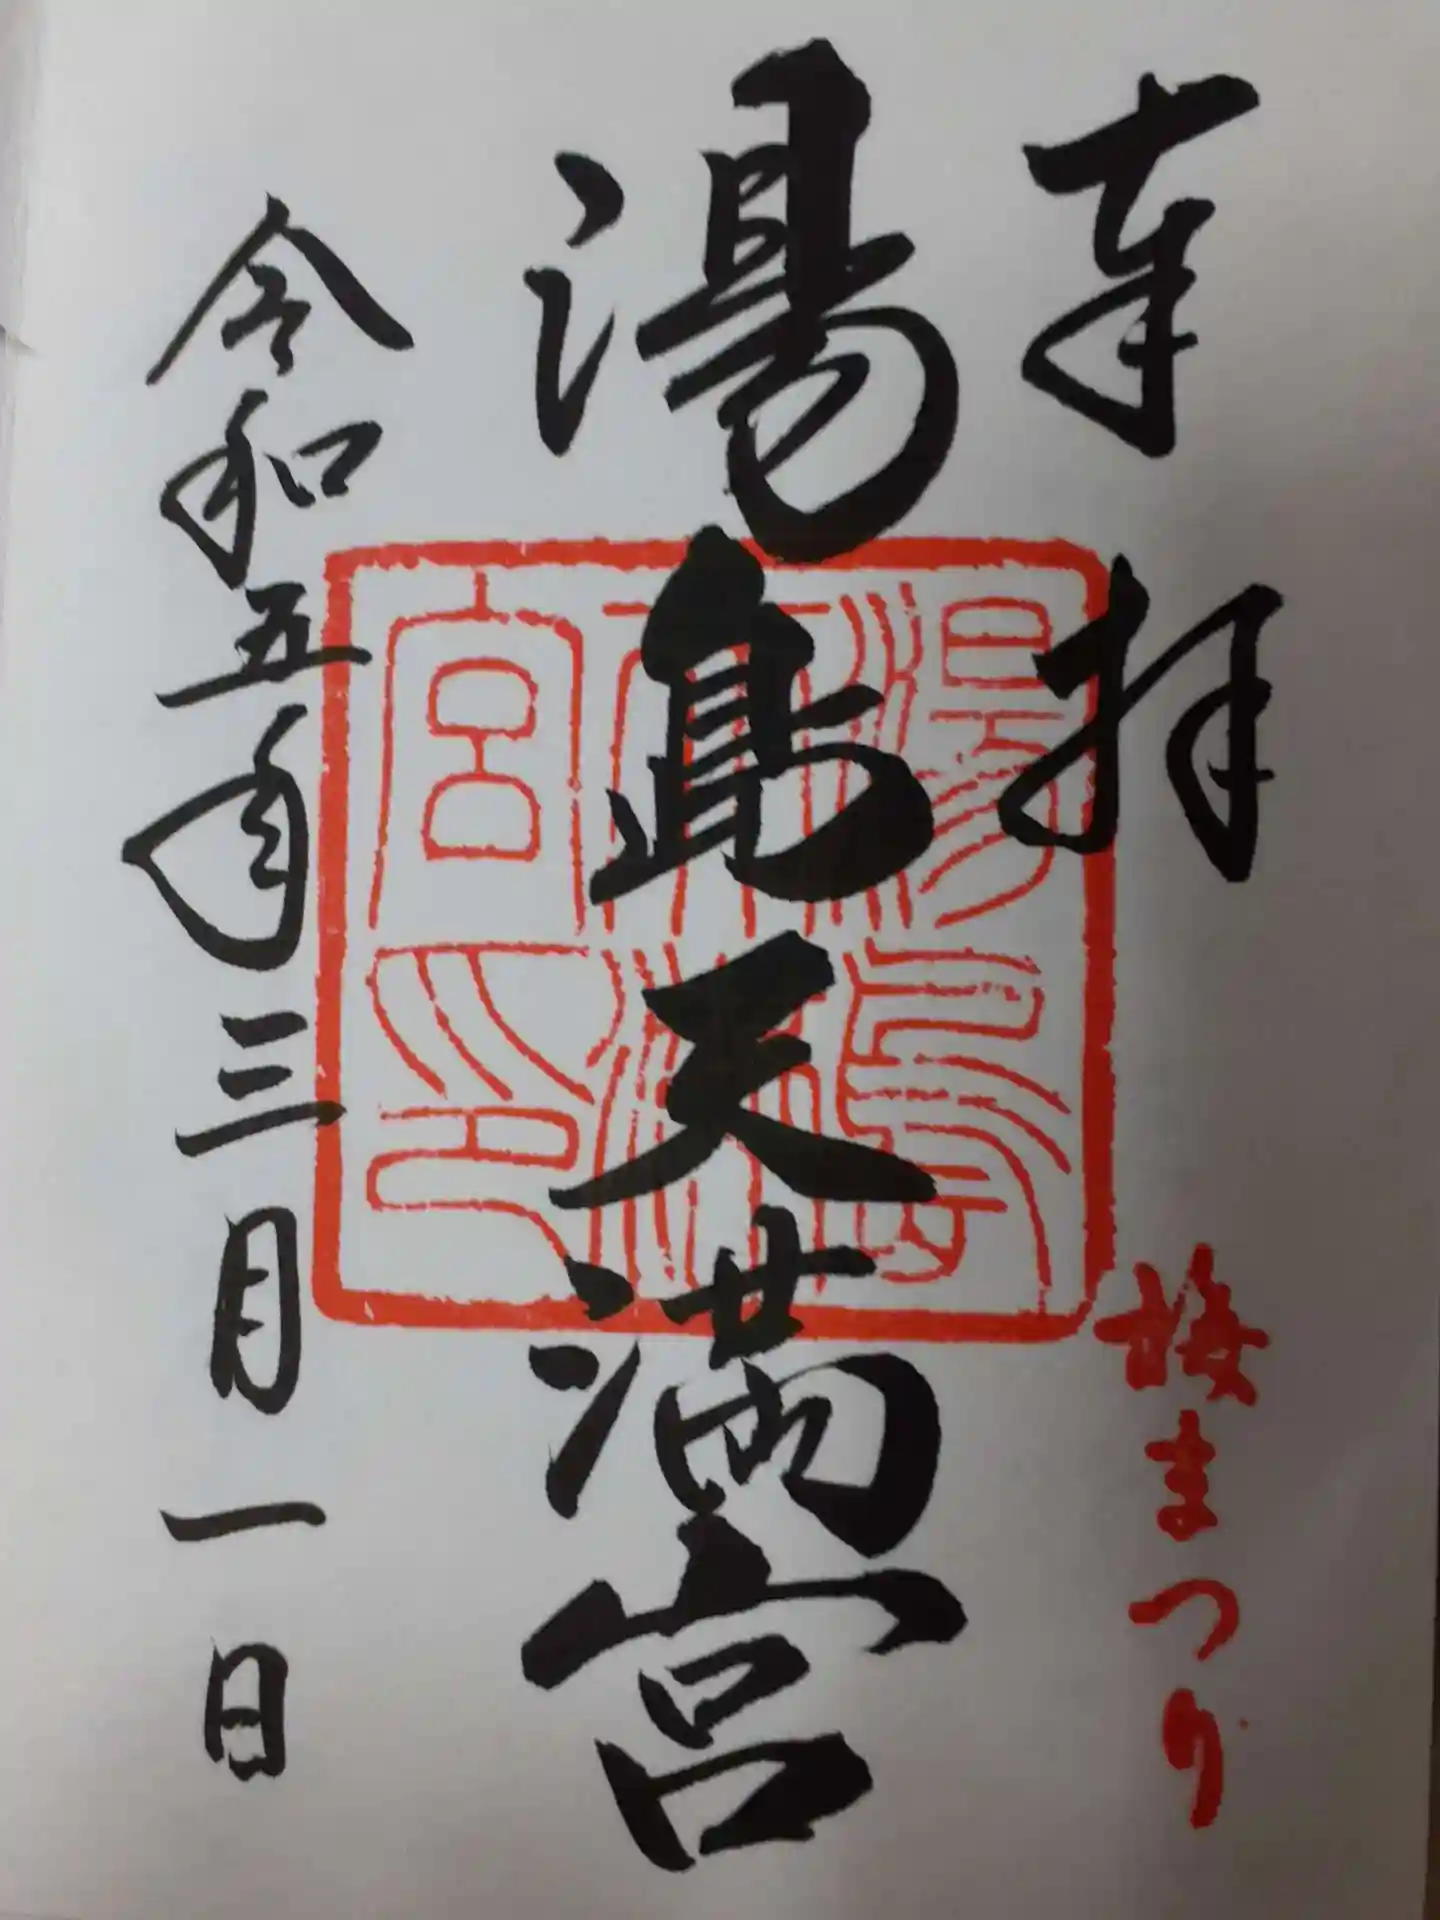 奉拝
梅まつり
湯島天満宮
湯島天満宮印
令和五年三月一日